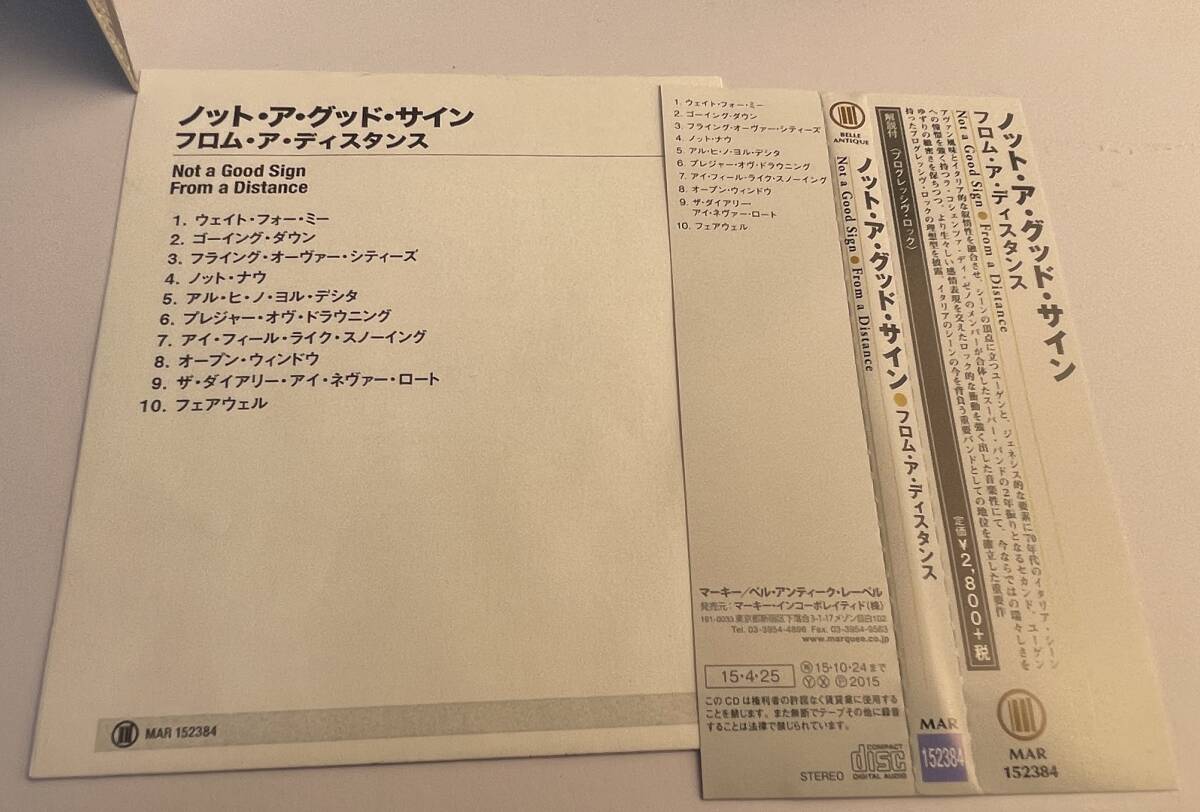 ノット・ア・グッド・サイン
フロム・ア・ディスタンス
Not a Good Sign
From a Distance
1. ウェイト・フォー・ミー
2. ゴーイング・ダウン
3. フライング・オーヴァー・シティーズ
4. ノット・ナウ
5. アル・ヒ・ノ・ヨル・デシタ
6. プレジャー・オヴ・ドラウニング
7. アイ・フィール・ライク・スノーイング
8. オープン・ウィンドウ
9. ザ・ダイアリー・アイ・ネヴァー・ロート
10. フェアウェル
MAR 152384
1. ウェイト・フォー・ミー
2. ゴーイング・ダウン
3. フライング・オーヴァー・シティーズ
4. ノット・ナウ
5. アル・ヒ・ノ・ヨル・デシタ
6. プレジャー・オヴ・ドラウニング
7. アイ・フィール・ライク・スノーイング
8. オープン・ウィンドウ
9. ザ・ダイアリー・
アイ・ネヴァー・ロート
10. フェアウェル
マーキー/ベル・アンティーク・レーベル
発売元:マーキー・インコーポレイティド(株)
161-0033 東京都新宿区下落合3-1-17メゾン目白102
Tel. 03-3954-4896 Fax. 03-3954-9563
www.marquee.co.jp
15・4・25
15・10・24まで
Ⓨ Ⓧ Ⓟ 2015
このCDは権利者の許諾なく賃貸業に使用する
ことを禁じます。また無断でテープその他に録音
することは法律で禁じられています。
STEREO
COMPACT
disc
DIGITAL AUDIO
BELLE
ANTIQUE
ノット・ア・グッド・サイン●フロム・ア・ディスタンス
Not a Good Sign ● From a Distance
MAR
152384
ノット・ア・グッド・サイン
フロム・ア・ディスタンス
Not a Good Sign ● From a Distance
アヴァン風味とイタリア的な叙情性を融合させ、シーンの頂点に立つユーゲンと、ジェネシス的な要素に70年代のイタリア・シーン
への憧憬を強く持つラ・コシェンツァ・ディ・ゼノのメンバーが合体したスーパー・バンドの2年振りとなるセカンド。ユーゲン
ゆずりの緻密さを保ちつつ、より生々しい感情表現を交えたロック的な衝動を強く出した音楽性にて、今ならではの瑞々しさを
持ったプログレッシヴ・ロックの理想型を披露。イタリアのシーンの今を背負う重要バンドとしての地位を確立した重要作
解説付
(プログレッシヴ・ロック)
定価¥2,800+税
MAR
152384